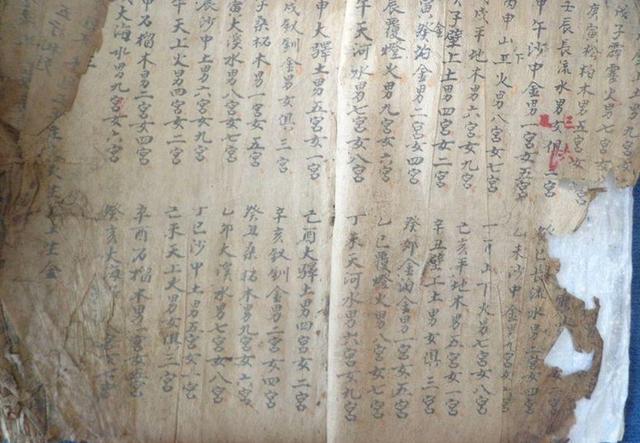 子霹靂火男七宮女
庚寅松柏木男
壬辰長流水男女俱三宮
甲午沙中金男一宮女五宮
丙申山下火男八宮女七宮
戌平地木男六宮女九宮
子壁上土男四宮女二宮
寅金泊金男二宮女四宮
辰覆燈火男九宮女六宮
午天河水男七宮女八宮
申大驛土男五宮女一宮
戌釵釧金男女俱三宮
子桑柘木男一宮女五宮
大溪水男八宮女七宮
辰沙中土男六宮女九宮
午天上火男四宮女二宮
申石榴木男二宮女四宮
大海水男九宮女六宮
巳長流水男二宮女四宮
乙未沙中金男九宮女
山下火男七宮女八宮
己亥平地木男五宮女一宮
辛丑壁上土男女俱三宮
癸卯金泊金男一宮女五宮
乙巳覆燈火男八宮女七宮
丁未天河水男六宮女九宮
己酉大驛土男四宮女二宮
辛亥釵釧金男二宮女四宮
癸丑桑柘木男九宮女六宮
乙卯大溪水男七宮女八宮
丁巳沙中土男五宮女一宮
己未天上火男女俱三宮
辛酉石榴木男一宮女五宮
癸亥大海水